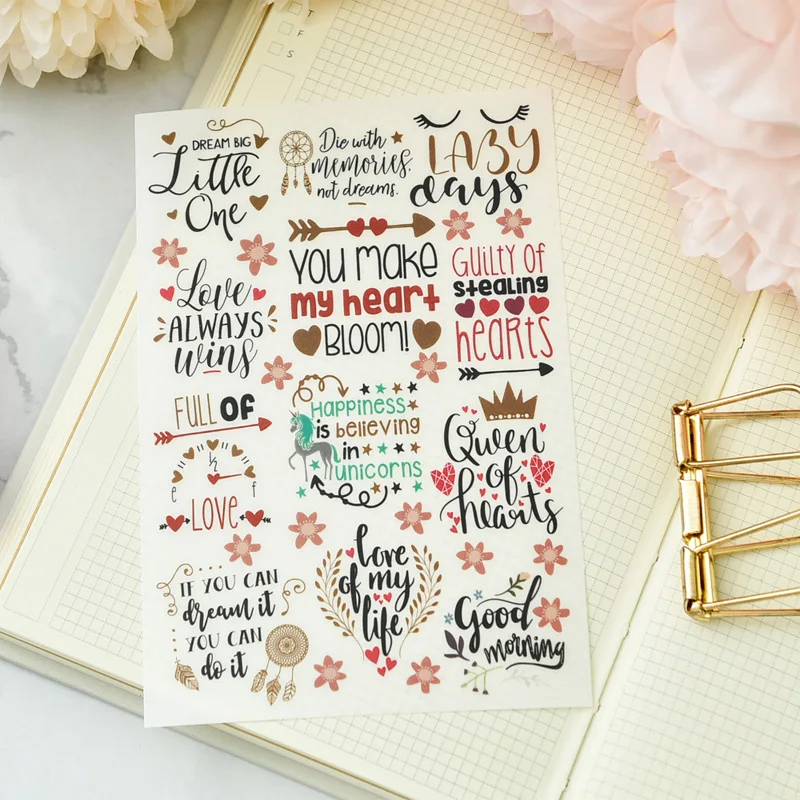 T
F
S
DREAM BIG
Little
One
Die with
memories,
not dreams.
LAZY
days
Love
ALWAYS
wins
YOU MAKE
my heart
BLOOM!
GUILTY OF
stealing
hearts
FULL OF
e f
LOVE
Happiness
is believing
in
unicorns
Qween
of
hearts
IF YOU CAN
dream it
YOU CAN
do it
love
of my
life
Good
morning